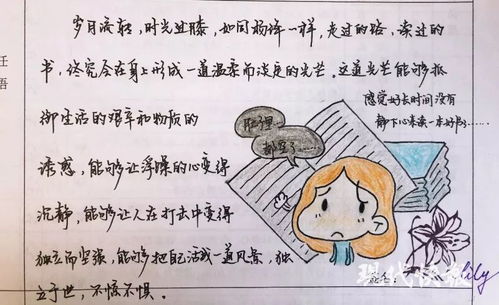 岁月流转，时光过膝，如同杨绛一样，走过的路，读过的
书，终究会在身上形成一道温柔而淡定的光芒。这道光芒能够抵
御生活的艰辛和物质的
诱惑，能够让浮躁的心变得
沉静，能够让人在打击中变得
独立而坚强，能够把自己活成一道风景，独
立于世，不惊不惧。
感觉好长时间没有
静下心来读一本好书……
肚子里
都空了……
任
语
现代快报
lily